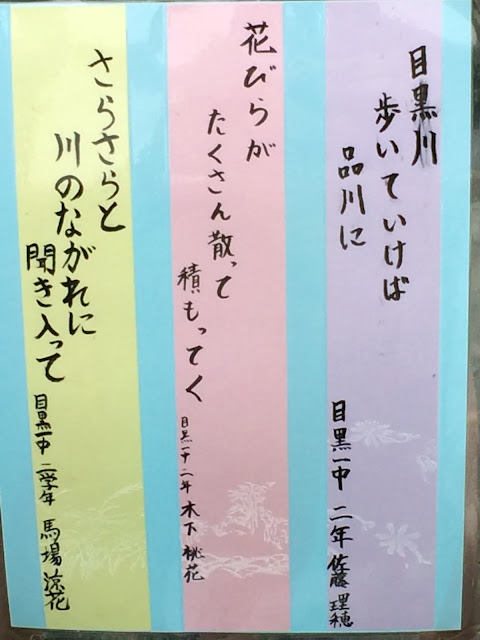 目黒川
歩いていけば
品川に
目黒一中 二年 佐藤 理穂
花びらが
たくさん散って
積もってく
目黒一中 二年 木下 桃花
さらさらと
川のながれに
聞き入って
目黒一中 二学年 馬場 涼花